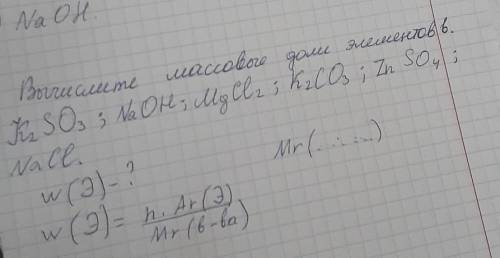 NaOH.
Вычислите массового доли элементов в.
K₂SO₃; NaOH; MgCl₂; K₂CO₃; ZnSO₄;
NaCl.
Mr(......)
w(Э)-?
w(Э)= n·Ar(Э)/Mr(в-ва)